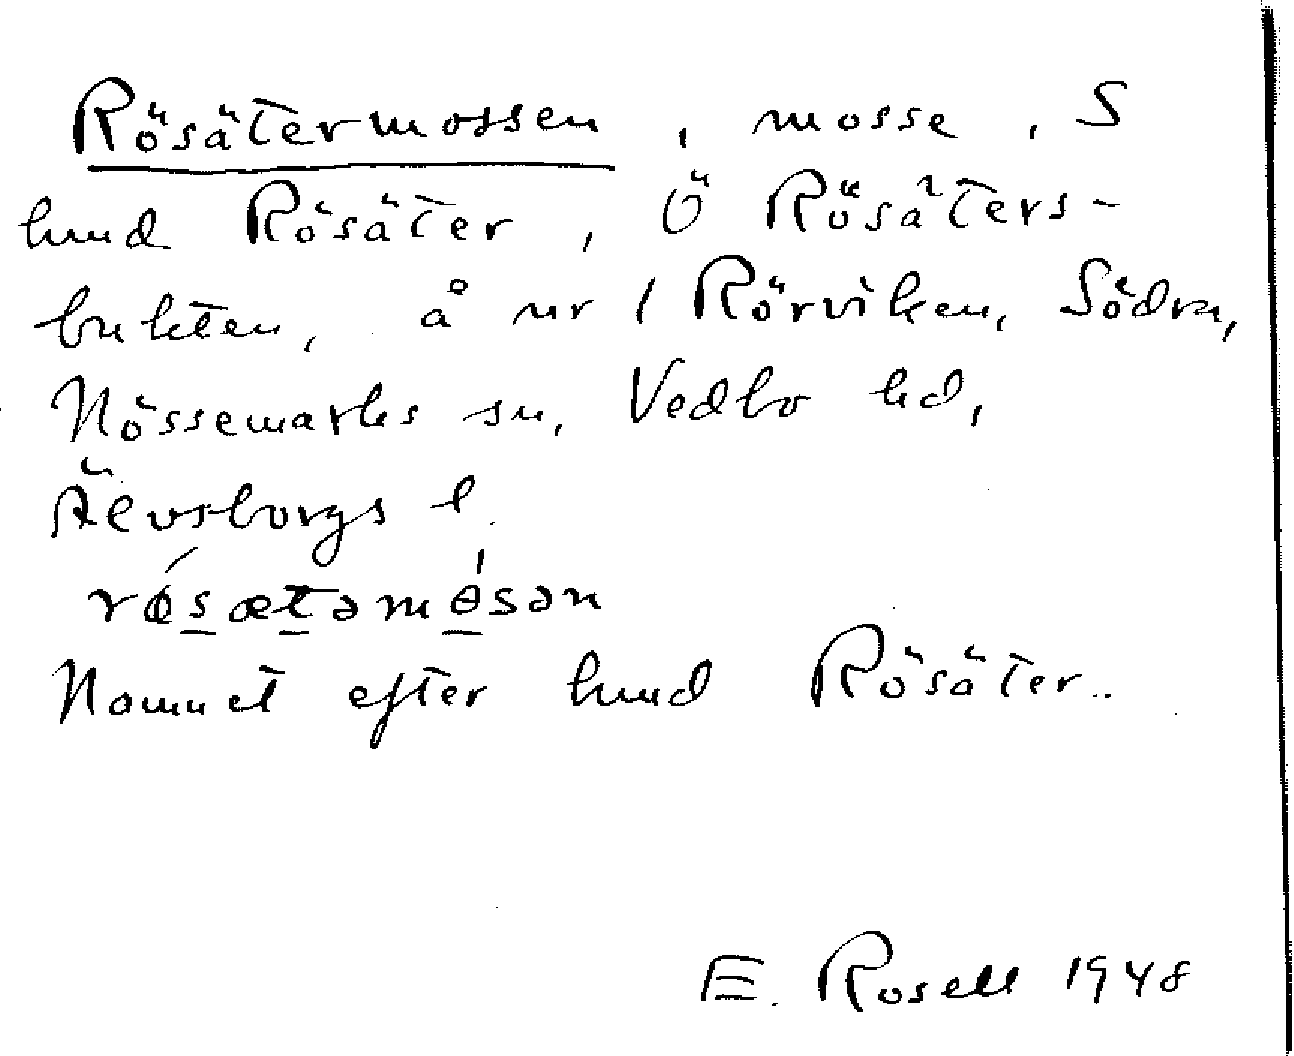 Rösätermossen, mosse, S
hmd Rösäter, Ö Rösäters-
bukten, å nr 1 Rörviken, Södra,
Nössemarks sn, Vedbo hd,
Älvsborgs l.
Namnet efter hmd Rösäter.
E. Rosell 1948